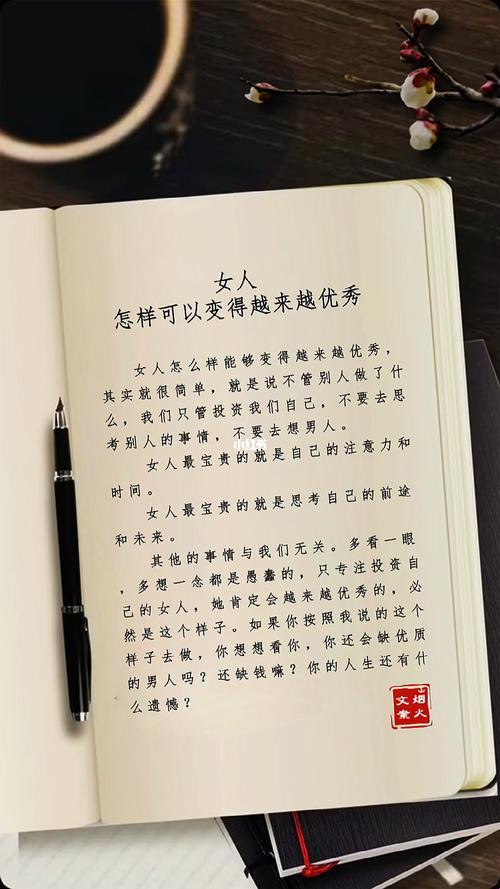 女人
怎样可以变得越来越优秀
女人怎么样能够变得越来越优秀，
其实就很简单，就是说不管别人做了什
么，我们只管投资我们自己，不要去思
考别人的事情，不要去想男人。
小红书
女人最宝贵的就是自己的注意力和
时间。
女人最宝贵的就是思考自己的前途
和未来。
其他的事情与我们无关。多看一眼
，多想一念都是愚蠢的，只专注投资自
己的女人，她肯定会越来越优秀的，必
然是这个样子。如果你按照我说的这个
样子去做，你想想看你，你还会缺优质
的男人吗？还缺钱嘛？你的人生还有什
么遗憾？
烟火
文案